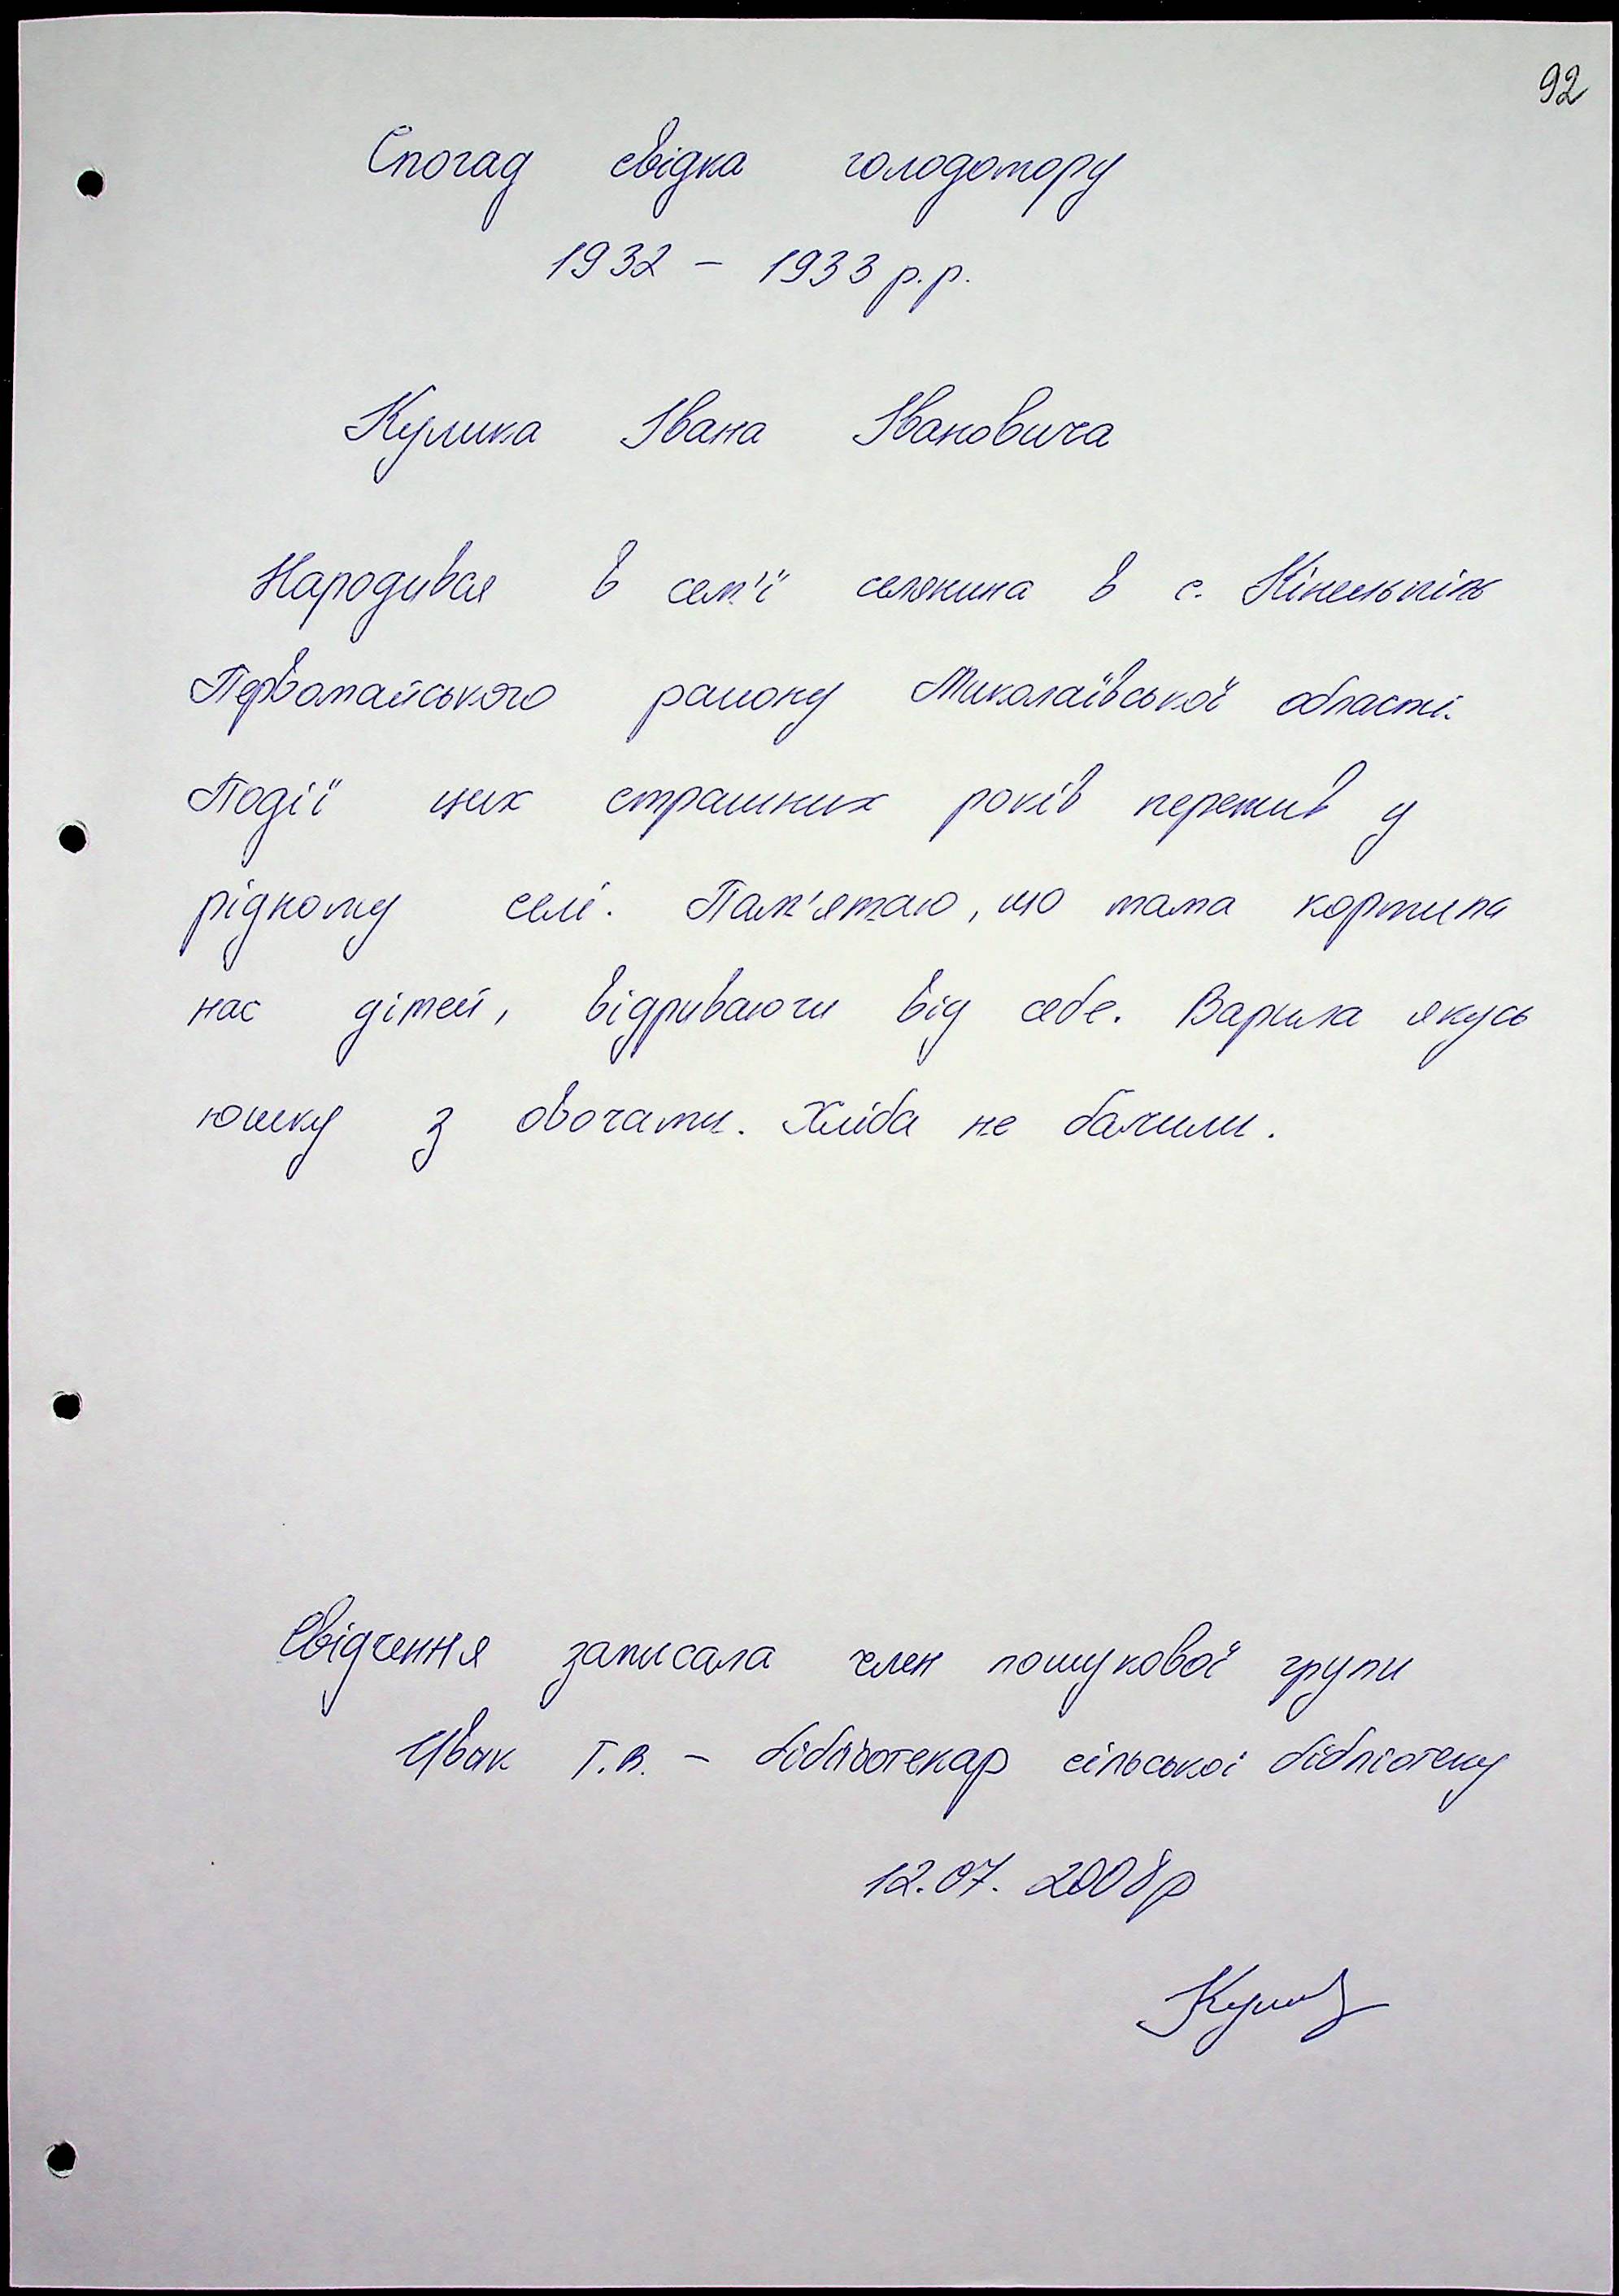 92
Спогад свідка голодомору
1932 – 1933 р.р.
Кулика Івана Івановича
Народився в сем'ї селянина в с. Кінецьпіль
Первомайського району Миколаївської області.
Події цих страшних років пережив у
рідному селі. Пам'ятаю, що мама кормила
нас дітей, відриваючи від себе. Варила якусь
юшку з овочами. Хліба не бачили.
Свідчення записала член пошукової групи
Цвик Т.В. – бібліотекар сільської бібліотеки
12.07.2008р